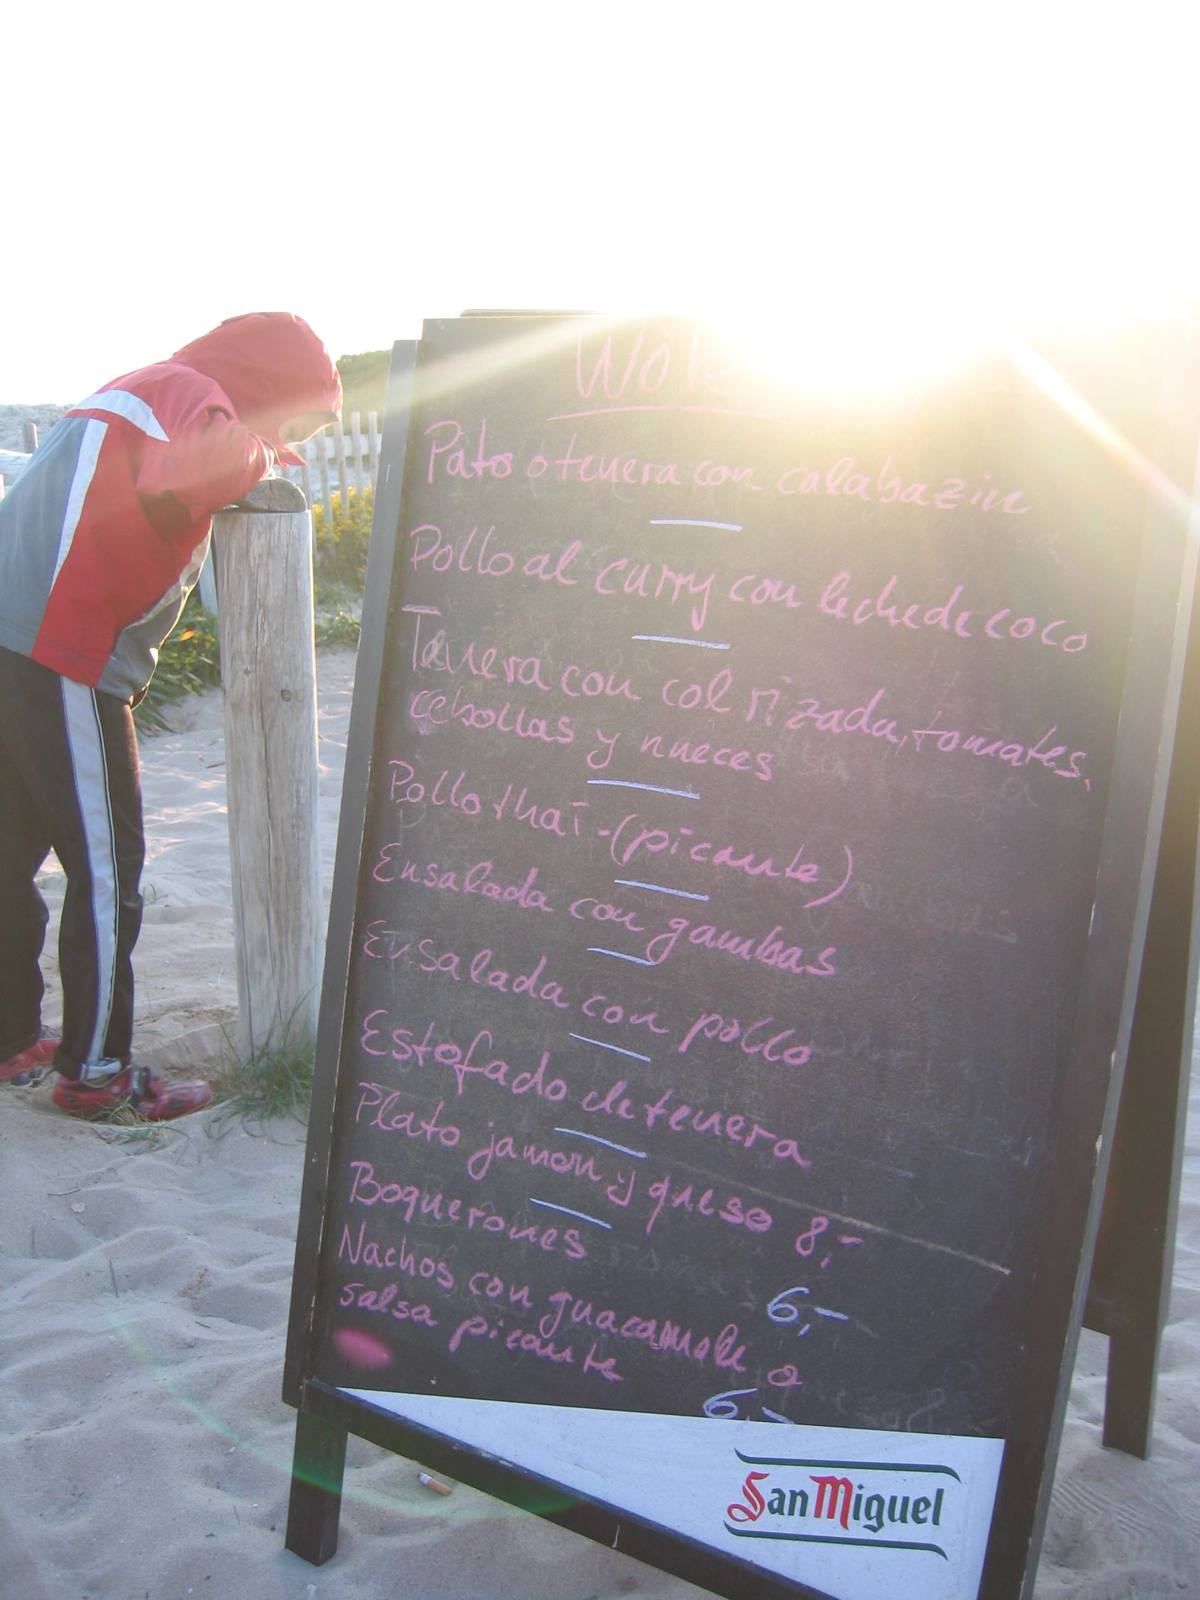 Wok
Pato o tenera con calabazin
Pollo al curry con leche de coco
Tenera con col rizada, tomates,
cebollas y nueces
Pollo thaï - (picante)
Ensalada con gambas
Ensalada con pollo
Estofado de tenera
Plato jamon y queso 8,-
Boquerones 6,-
Nachos con guacamole o
salsa picante 6,-
San Miguel